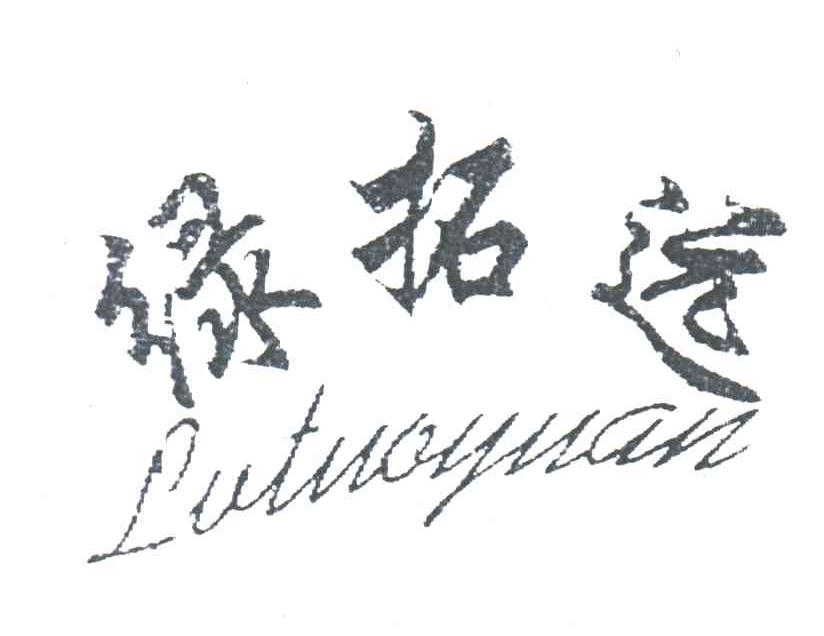 绿拓远
Lutuoyuan